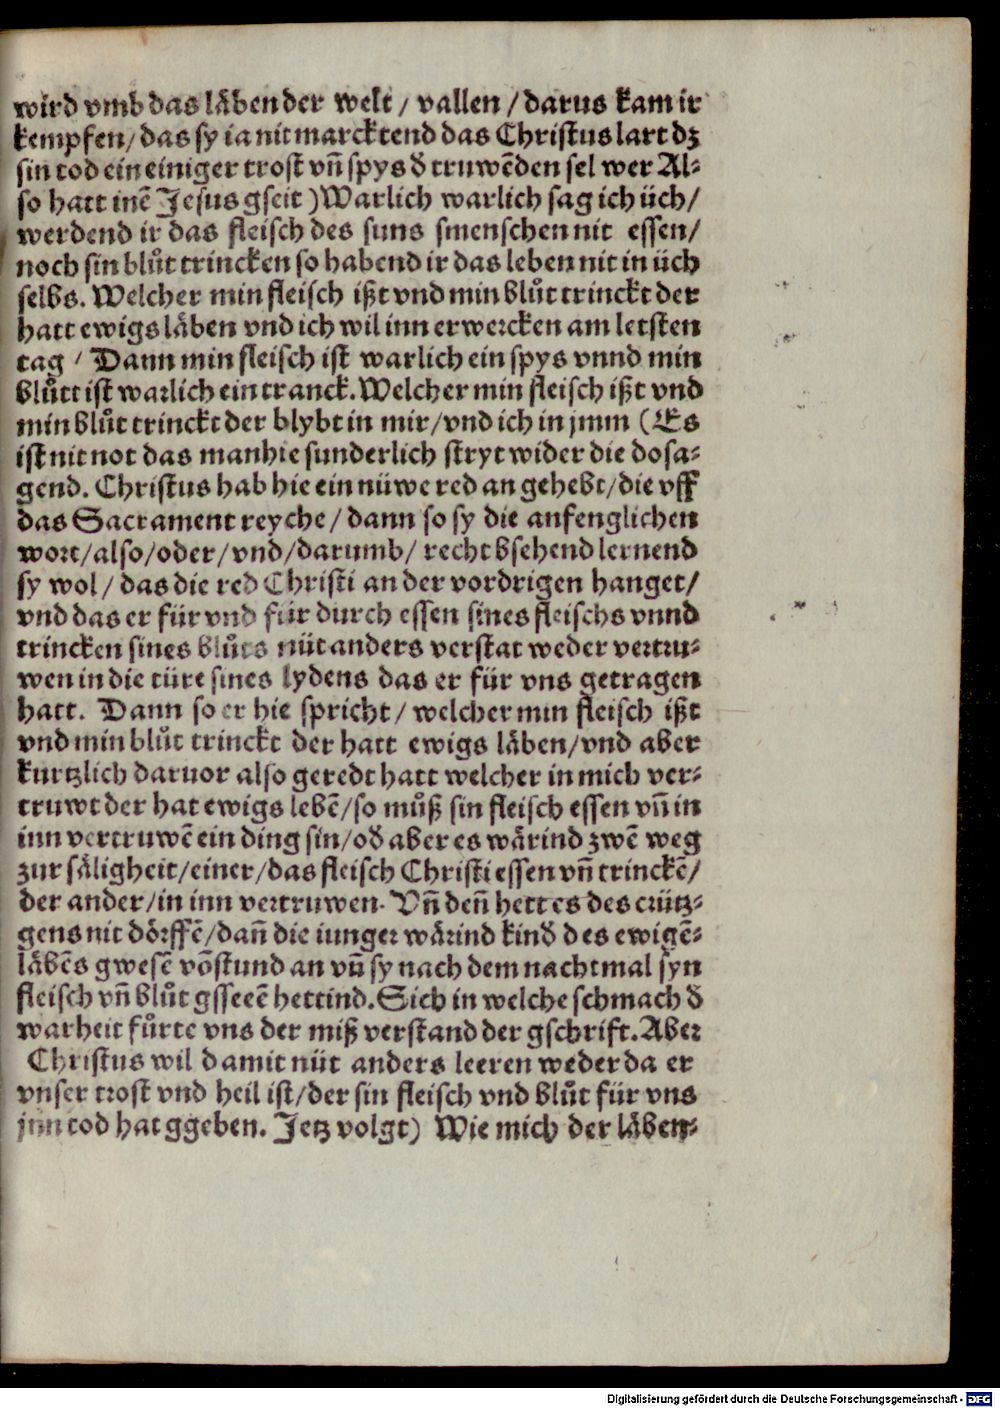 wird vmb das läben der welt / vallen / darus kam ir
kempfen / das sy ia nit marcktend das Christus lart dz
sin tod ein einiger trost vn̄ spys đ truwēden sel wer Al-
so hatt inē Jesus gseit ) Warlich warlich sag ich üch /
werdend ir das fleisch des suns smenschen nit essen /
noch sin blůt trincken so habend ir das leben nit in üch
selbs. Welcher min fleisch ißt vnd min blůt trinckt der
hatt ewigs läben vnd ich wil inn erwercken am letsten
tag / Dann min fleisch ist warlich ein spys vnnd min
blůtt ist warlich ein tranck. Welcher min fleisch ißt vnd
min blůt trinckt der blybt in mir / vnd ich in jmm ( Es
ist nit not das man hie sunderlich stryt wider die do sa-
gend. Christus hab hie ein nüwe red an gehebt / die vff
das Sacrament reyche / dann so sy die anfenglichen
wort / also / oder / vnd / darumb / recht bsehend lernend
sy wol / das die red Christi an der vordrigen hanget /
vnd das er für vnd für durch essen sines fleischs vnnd
trincken sines blůts nüt anders verstat weder vertru-
wen in die türe sines lydens das er für vns getragen
hatt. Dann so er hie spricht / welcher min fleisch ißt
vnd min blůt trinckt der hatt ewigs läben / vnd aber
kurtzlich daruor also geredt hatt welcher in mich ver-
truwt der hat ewigs lebē / so můß sin fleisch essen vn̄ in
inn vertruwē ein ding sin / ođ aber es wärind zwē weg
zur säligheit / einer / das fleisch Christi essen vn̄ trinckē /
der ander / in inn vertruwen. Vn̄ den̄ hett es des crütz-
gens nit dörffē / dan̄ die iunger wärind kind des ewigē-
läbēs gwesē vō stund an vn̄ sy nach dem nachtmal syn
fleisch vn̄ blůt gsseeē hettind. Sich in welche schmach đ
warheit fůrte vns der miß verstand der gschrift. Aber
Christus wil damit nüt anders leeren weder da er
vnser trost vnd heil ist / der sin fleisch vnd blůt für vns
jnn tod hat ggeben. Jetz volgt ) Wie mich der läben-
Digitalisierung gefördert durch die Deutsche Forschungsgemeinschaft - DFG